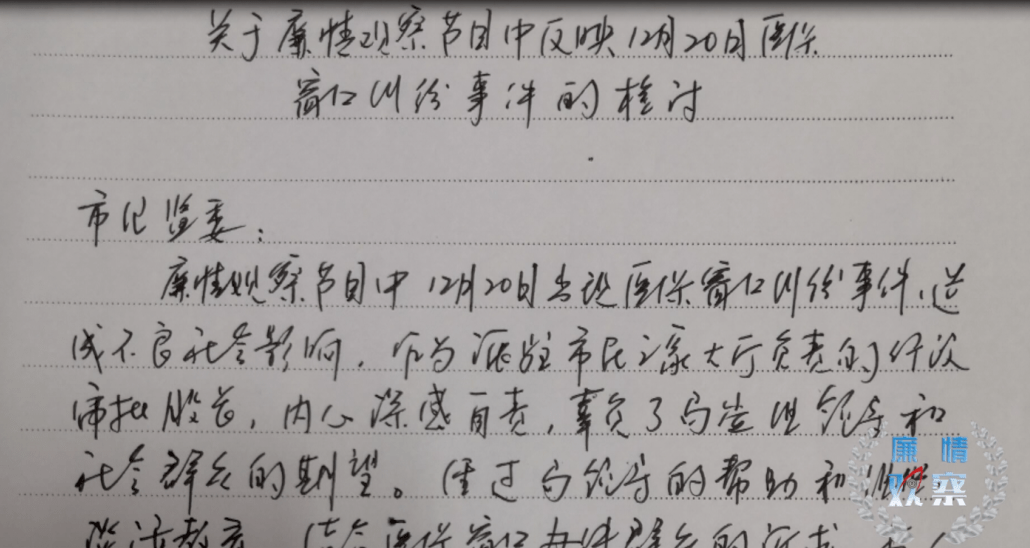 关于廉情观察节目中反映12月20日医保
窗口纠纷事件的检讨
市纪监委：
廉情观察节目中12月20日出现医保窗口纠纷事件，造
成不良社会影响，作为派驻市民之家大厅负责的行政
审批股长，内心深感自责，辜负了局党组领导和
社会群众的期望。通过局领导的帮助和
谈话教育，结合医保窗口办件群众的
廉情
观察